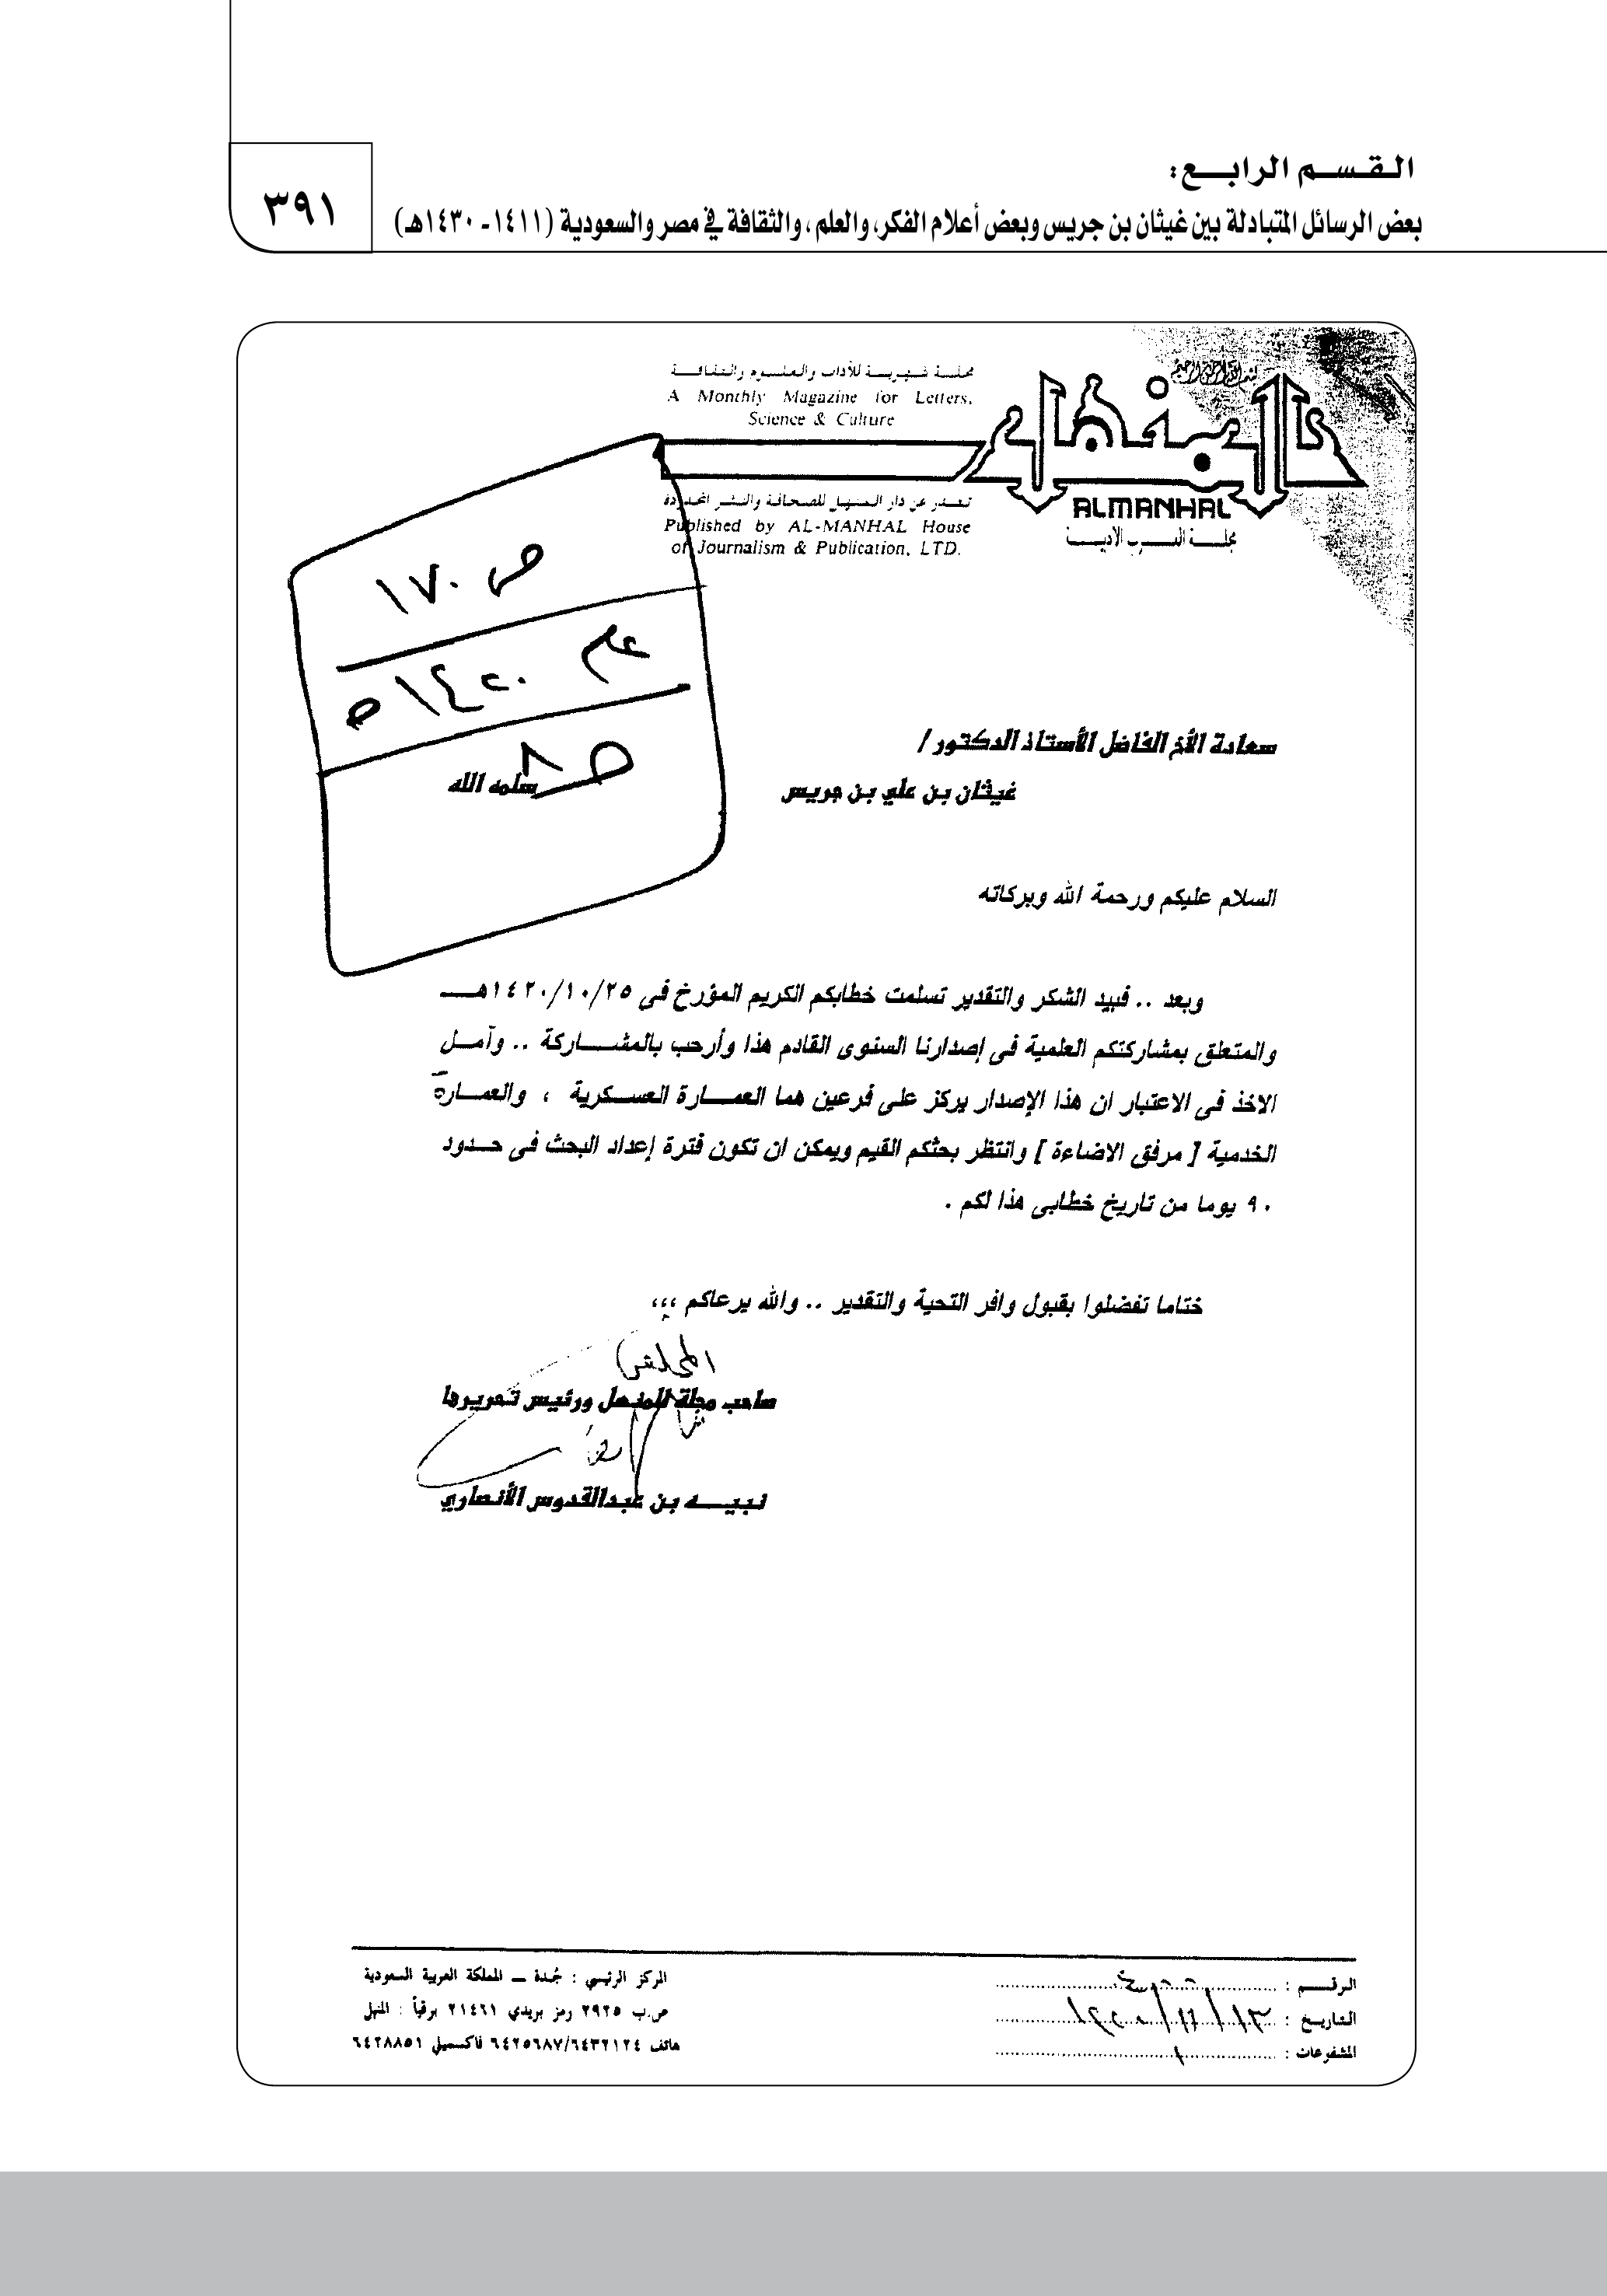 القسم الرابع:
بعض الرسائل المتبادلة بين غيثان بن جريس وبعض أعلام الفكر، والعلم، والثقافة في مصر والسعودية (١٤١١ـ ١٤٣٠هـ)
٣٩١
مجلـة شهريـة للآداب والعلـوم والثقافـة
A Monthly Magazine for Letters,
Science & Culture
بسم الله الرحمن الرحيم
المنهل
ALMANHAL
مجلـة العـرب الأدبيـة
تصـدر عن دار المنهـل للصحافة والنشـر المحدودة
Published by AL-MANHAL House
of Journalism & Publication, LTD.
ص ١٧٠
عام ١٤٢٠هـ
سعادة الأخ الفاضل الأستاذ الدكتور /
غيثان بن علي بن جريس سلمه الله
السلام عليكم ورحمة الله وبركاته
وبعد .. فبيد الشكر والتقدير تسلمت خطابكم الكريم المؤرخ فى ١٤٢٠/١٠/٢٥هـــ
والمتعلق بمشاركتكم العلمية فى إصدارنا السنوى القادم هذا وأرحب بالمشـــاركة .. وآمـــل
الاخذ فى الاعتبار ان هذا الإصدار يركز على فرعين هما العمـــارة العســكرية ، والعمـــارة
الخدمية [ مرفق الاضاءة ] وانتظر بحثكم القيم ويمكن ان تكون فترة إعداد البحث فى حـــدود
٩٠ يوما من تاريخ خطابى هذا لكم .
ختاما تفضلوا بقبول وافر التحية والتقدير .. والله يرعاكم ،،،
المخلص
صاحب مجلة المنهل ورئيس تحريرها
نبيـــه بن عبدالقدوس الأنصاري
الرقـــم :
التاريـخ :
المشفوعات : ١
المركز الرئيسي : جُدة ــ المملكة العربية السعودية
ص.ب ٢٩٢٥ رمز بريدي ٢١٤٦١ برقياً : المنهل
هاتف ٦٤٢٥٦٨٧/٦٤٣٢١٢٤ فاكسميلي ٦٤٢٨٨٥١